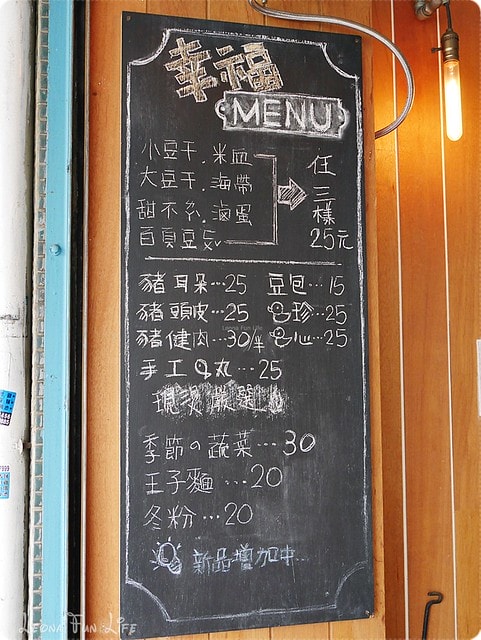 幸福
MENU
小豆干.米血
大豆干.海帶
甜不糸.滷蛋
百頁豆
任
三
樣
25元
豬耳朵…25 豆包…15
豬頭皮…25 珍…25
豬健肉…30/半 心…25
手工Q丸…25
季節の蔬菜…30
王子麵…20
冬粉…20
新品增加中…
LEONA FUN LIFE